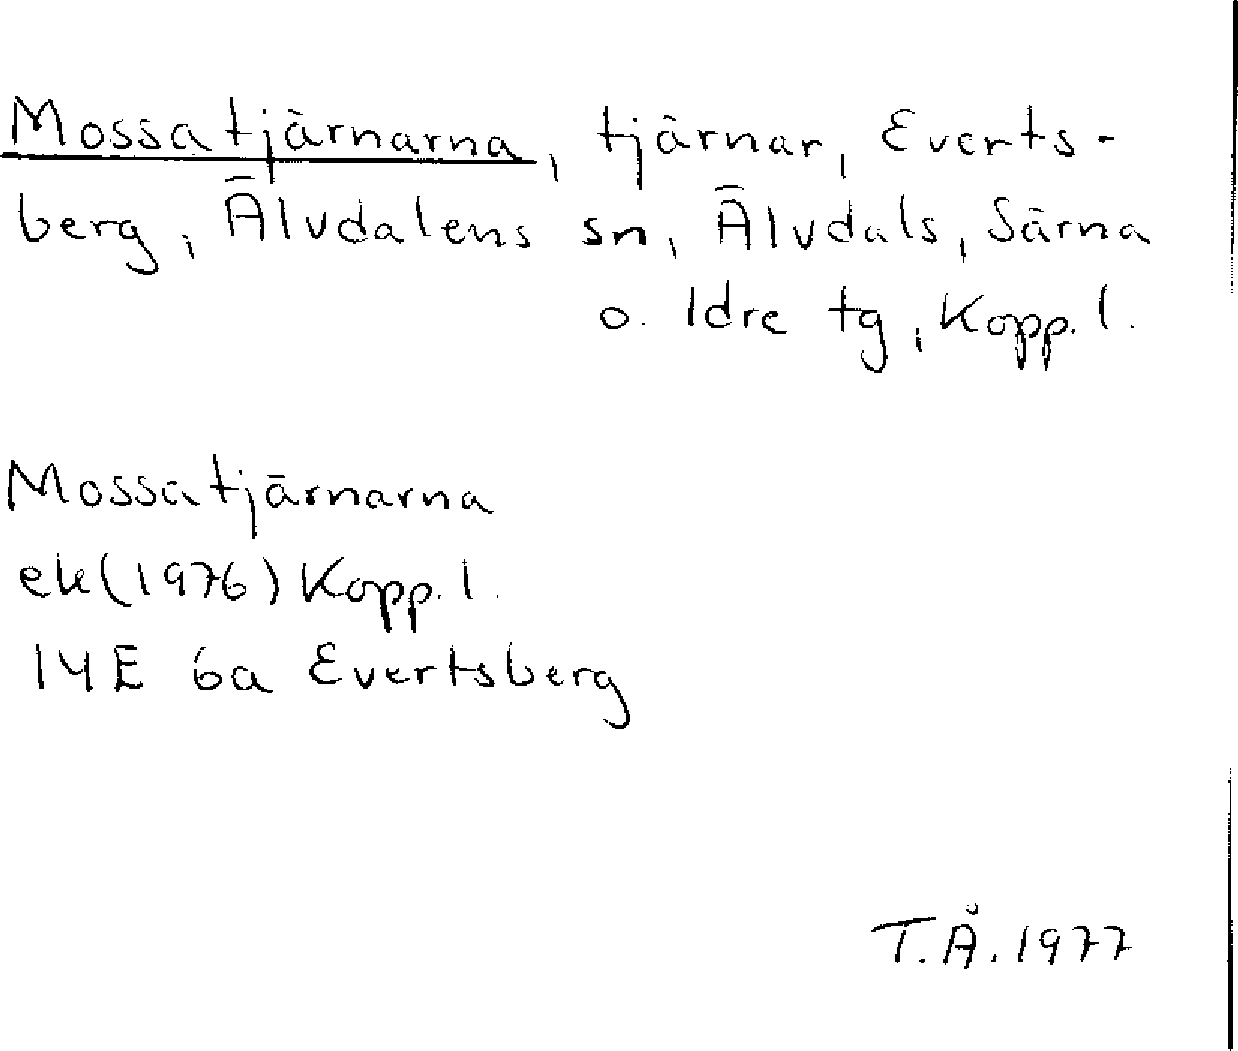 Mossatjärnarna, tjärnar, Everts-
berg, Älvdalens sn, Älvdals, Särna
o. Idre tg, Kopp. l.
Mossatjärnarna
ek(1976) Kopp. l.
14E 6a Evertsberg
T.Å. 1977